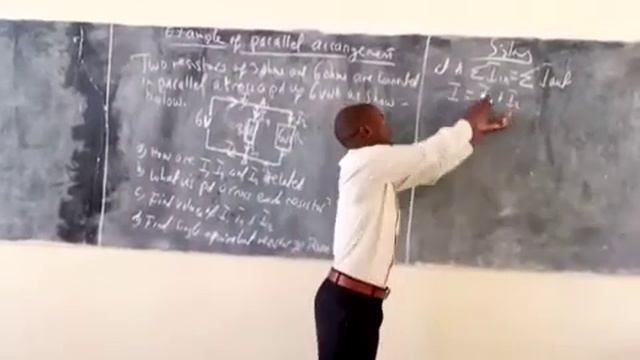 Example of parallel arrangement
Two resistors of 3 ohms and 6 ohms are connected
in parallel across a pd of 6 volt as show -
below.
6V
a) How are I, I₁ and I₂ related
b) What is pd across each resistor?
c) Find value of I, I₁, I₂
d) Find single equivalent resistor
Soln
at A Σ Iin = Σ Iout
I = I₁ + I₂